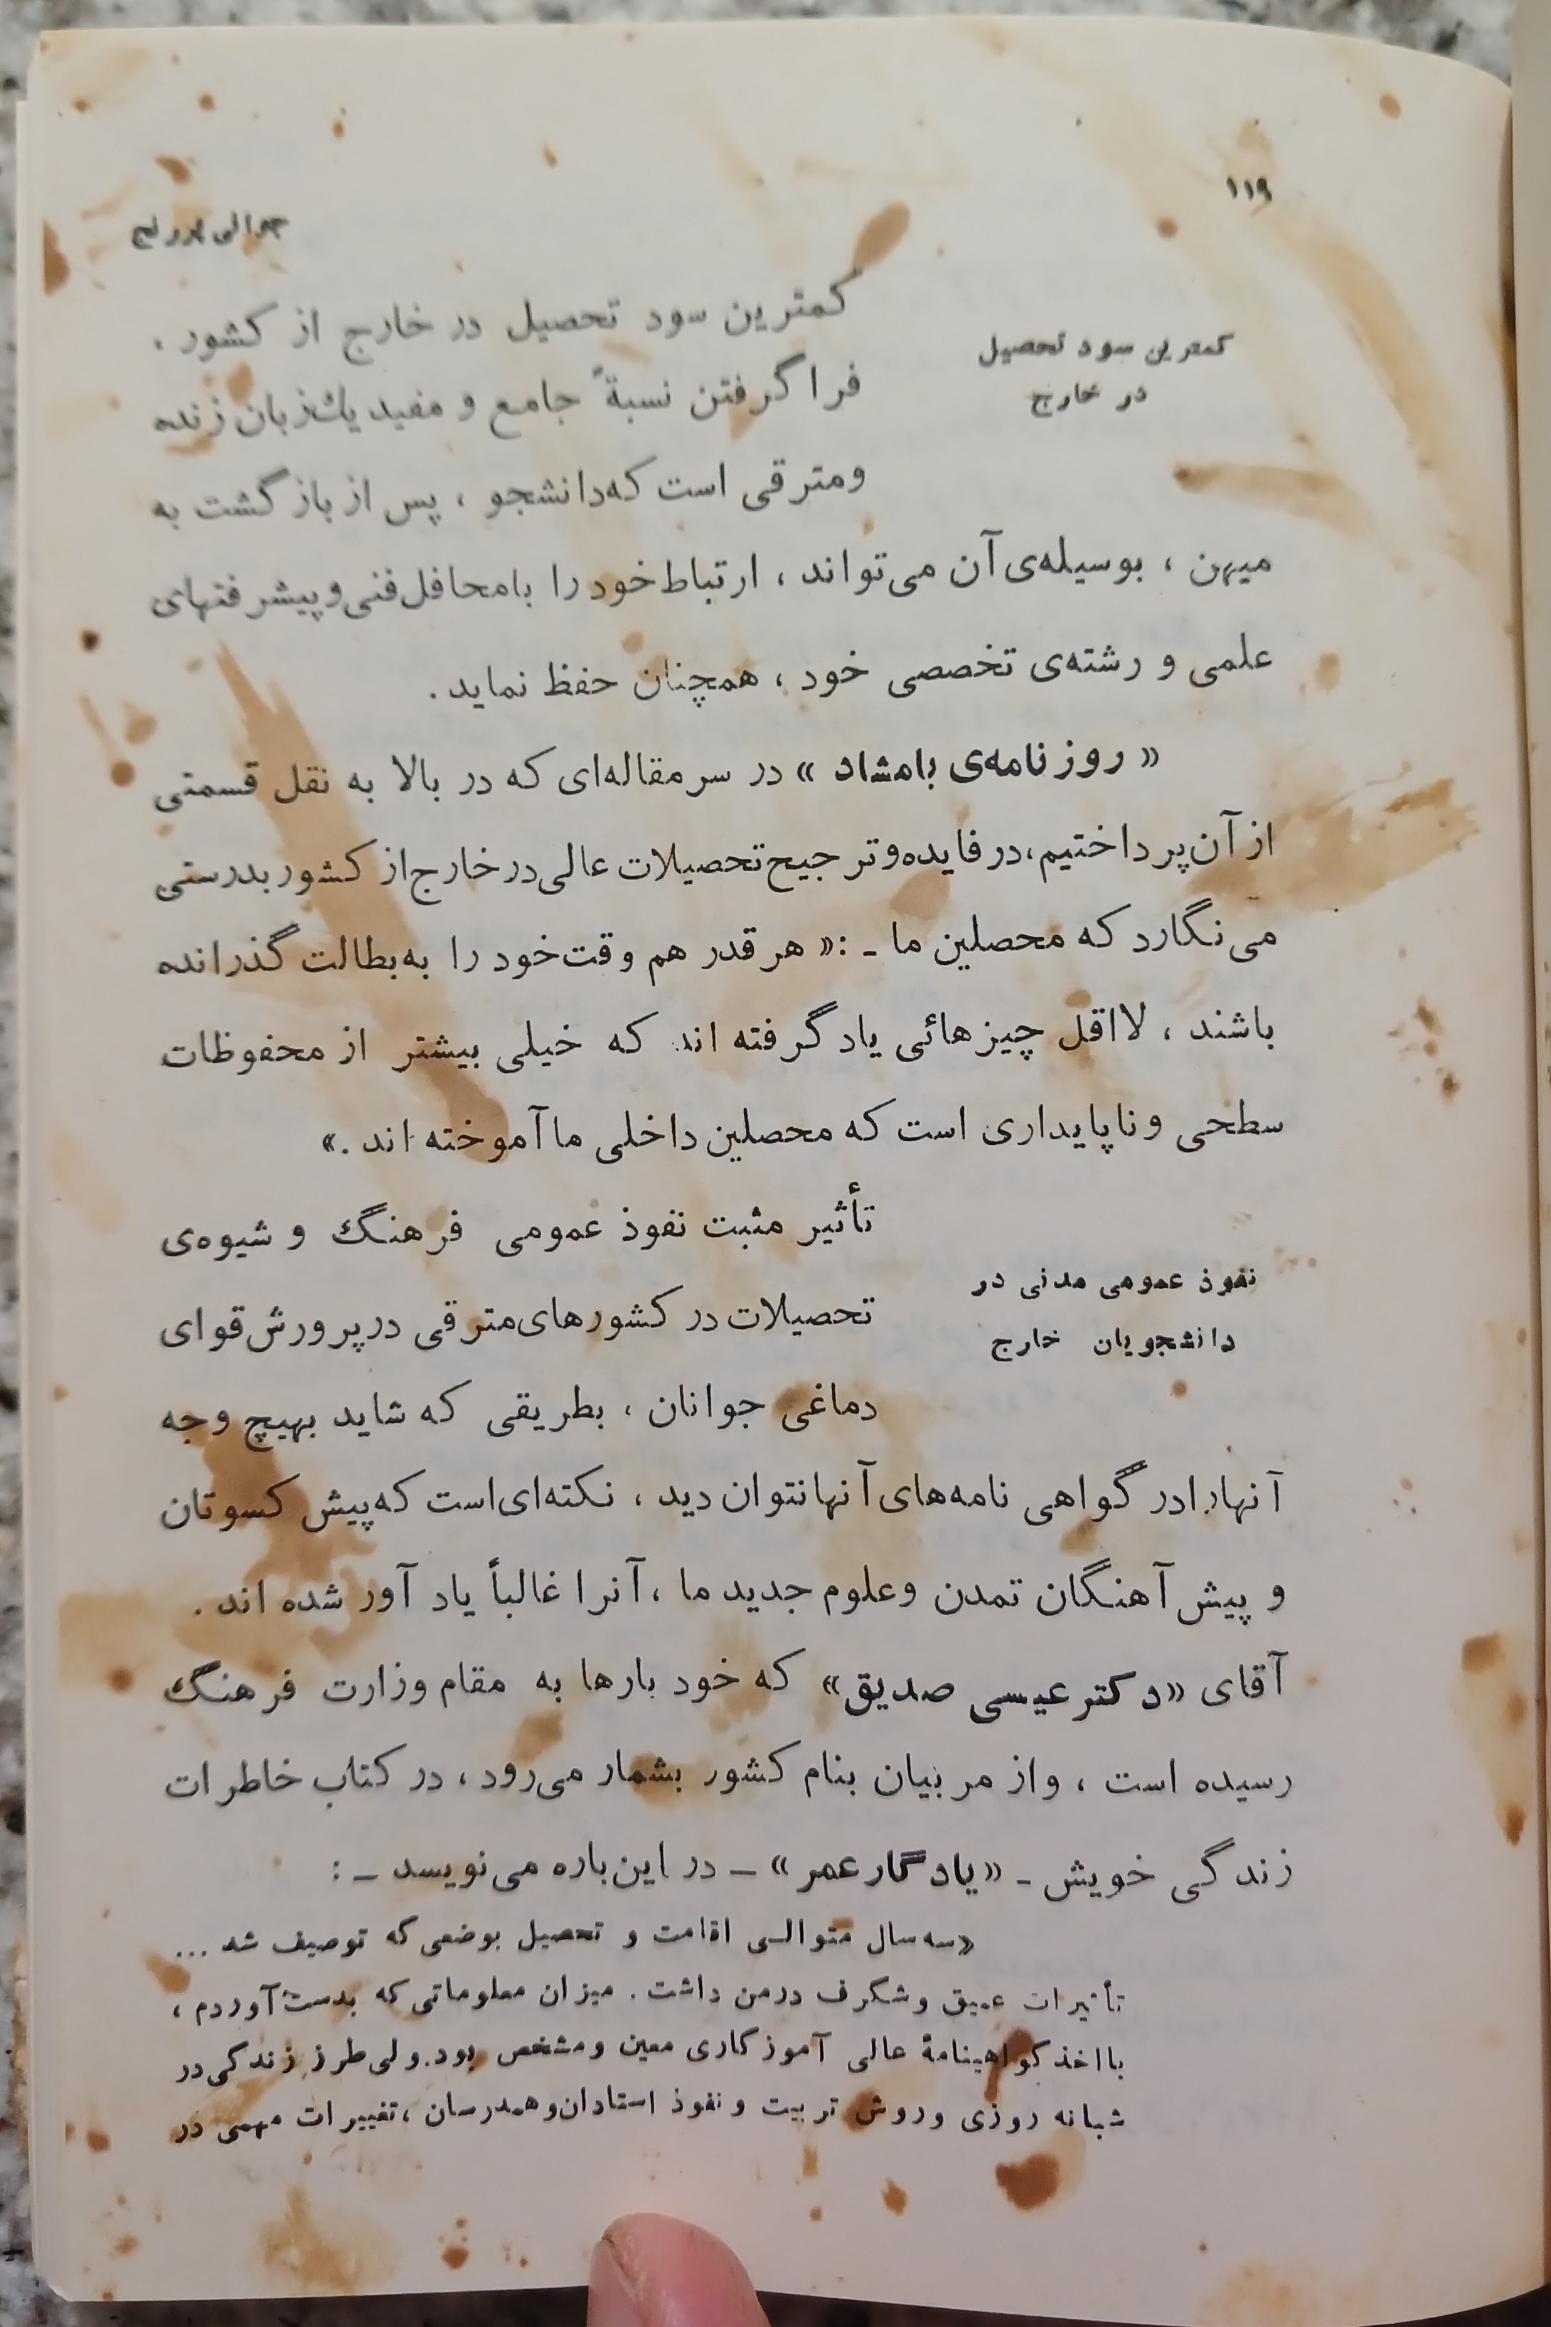 ۱۱۹
جوانی پررنج
کمترین سود تحصیل
در خارج
کمترین سود تحصیل در خارج از کشور .
فرا گرفتن نسبةً جامع و مفید یك‌زبان زنده
ومترقی است که‌دانشجو ، پس از باز گشت به
میهن ، بوسیله‌ی آن می‌تواند ، ارتباط خود را بامحافل‌فنی‌و پیشرفتهای
علمی و رشته‌ی تخصصی خود ، همچنان حفظ نماید .
« روزنامه‌ی بامشاد » در سرمقاله‌ای که در بالا به نقل قسمتی
از آن‌پرداختیم، در فایده‌و ترجیح تحصیلات عالی‌در خارج‌از کشور بدرستی
می‌نگارد که محصلین ما ـ :« هر قدر هم وقت‌خود را به‌بطالت گذرانده
باشند ، لااقل چیزهائی یاد گرفته اند که خیلی بیشتر از محفوظات
سطحی وناپایداری است که محصلین داخلی ما آموخته اند .»
نفوذ عمومی مدنی در
دانشجویان خارج
تأثیر مثبت نفوذ عمومی فرهنگ و شیوه‌ی
تحصیلات در کشورهای‌مترقی درپرورش‌قوای
دماغی جوانان ، بطریقی که شاید بهیچ وجه
آنهارادر گواهی نامه‌های آنهانتوان دید ، نکته‌ای‌است که‌پیش کسوتان
و پیش آهنگان تمدن وعلوم جدید ما ، آنرا غالباً یاد آور شده اند .
آقای «دکترعیسی صدیق» که خود بارها به مقام وزارت فرهنگ
رسیده است ، واز مربیان بنام کشور بشمار می‌رود ، در کتاب خاطرات
زندگی خویش ـ «یادگارعمر» ـ در این‌باره می‌نویسد ـ :
«سه سال متوالی اقامت و تحصیل بوضعی که توصیف شد ...
تأثیرات عمیق وشگرف درمن داشت . میزان معلوماتی که بدست‌آوردم ،
بااخذ گواهینامهٔ عالی آموزگاری معین ومشخص بود. ولی‌طرز زندگی‌در
شبانه روزی وروش تربیت ونفوذ استادان‌وهمدرسان ، تغییرات مهمی در